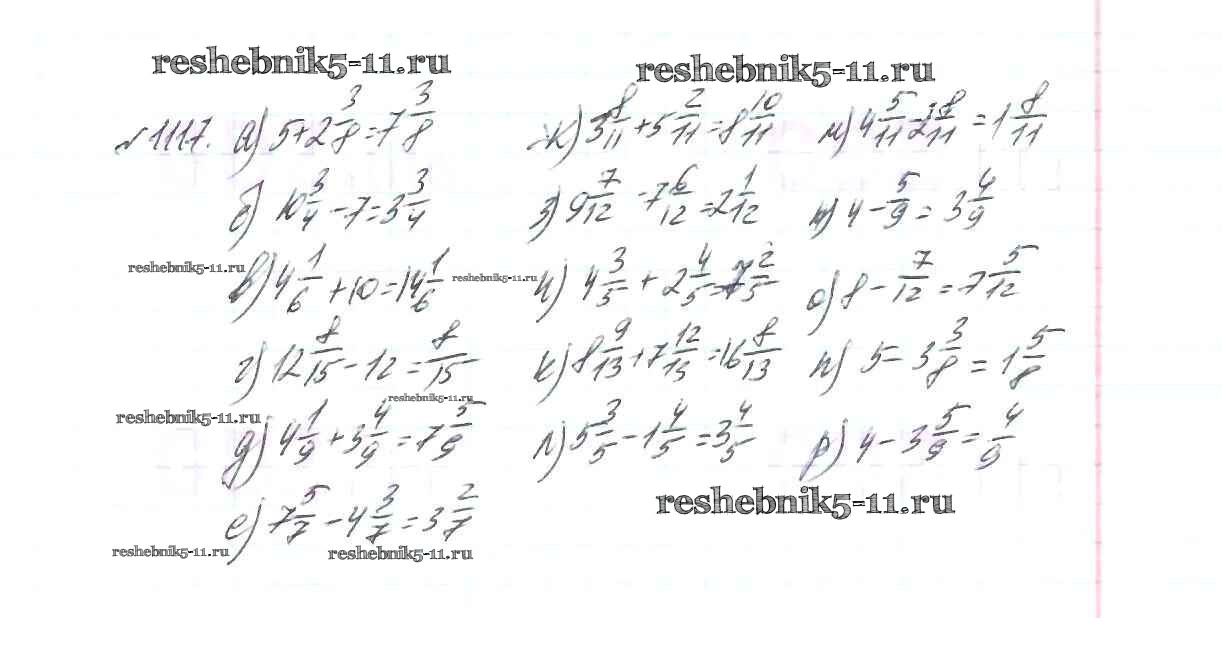 reshebnik5-11.ru
reshebnik5-11.ru
№1117. а) 5+2 3/8=7 3/8
б) 10 3/4-7=3 3/4
reshebnik5-11.ru
в) 4 1/6+10=14 1/6
г) 12 8/15-12=8/15
reshebnik5-11.ru
reshebnik5-11.ru
д) 4 1/9+3 4/9=7 5/9
е) 7 5/7-4 3/7=3 2/7
reshebnik5-11.ru
reshebnik5-11.ru
ж) 3 8/11+5 2/11=8 10/11
з) 9 7/12-7 6/12=2 1/12
reshebnik5-11.ru
и) 4 3/5+2 4/5=7 2/5
к) 8 9/13+7 12/13=16 8/13
л) 5 3/5-1 4/5=3 4/5
м) 4 5/11-2 8/11=1 8/11
н) 4-5/9=3 4/9
о) 8-7/12=7 5/12
п) 5-3 3/8=1 5/8
р) 4-3 5/9=4/9
reshebnik5-11.ru